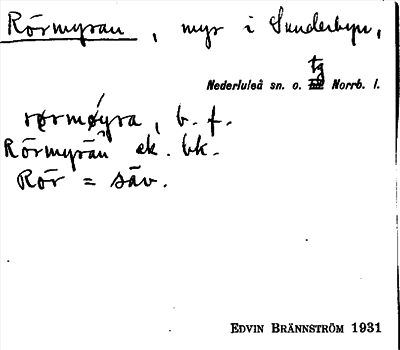 Rörmyran, myr i Sunderbyn,
tg
Nederluleå sn. o. Norrb. l.
rørmøyra, b. f.
Rörmyrän ek. bk.
Rör = säv.
EDVIN BRÄNNSTRÖM 1931